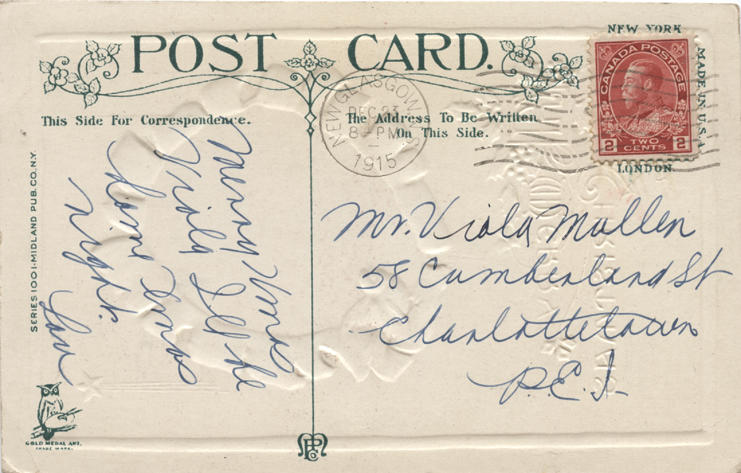 POST CARD.
NEW YORK
MADE IN U.S.A.
LONDON
CANADA POSTAGE
2 TWO CENTS 2
NEW GLASGOW
DEC 23
8 PM
1915
This Side For Correspondence.
The Address To Be Written
On This Side.
Merry Xmas
Viola I'll be
home Xmas
night.
Mr. Viola Mullen
58 Cumberland St
Charlottetown
P.E.I.
SERIES 1001-MIDLAND PUB. CO. N.Y.
GOLD MEDAL ART.
TRADE MARK.